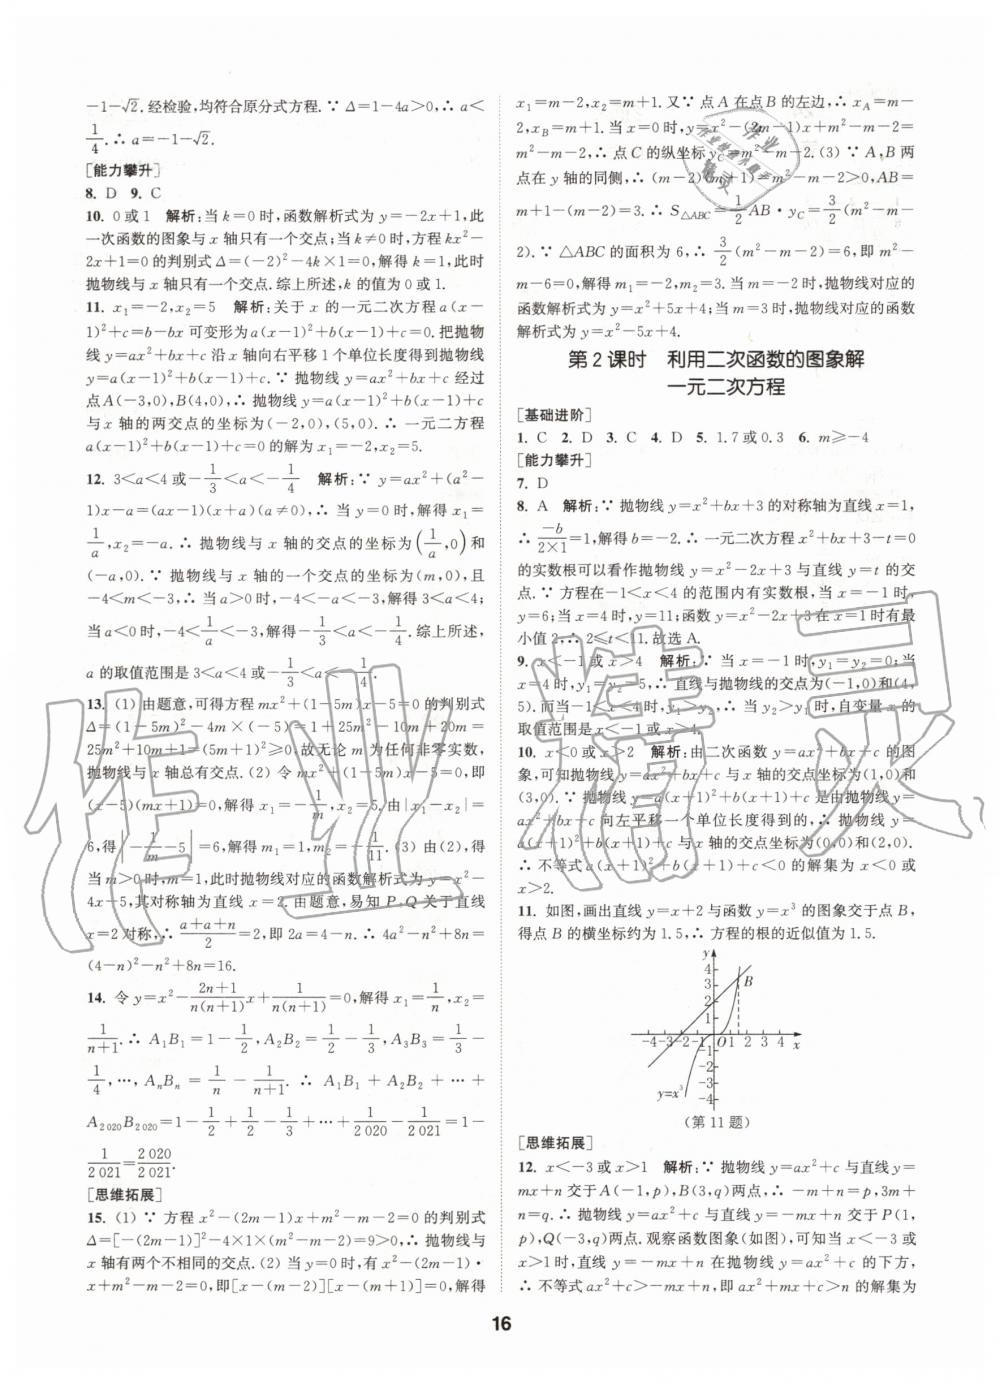 -1-√2. 经检验,均符合原分式方程.∵ Δ=1-4a>0,∴ a<
1/4.∴ a=-1-√2.
[能力攀升]
8. D 9. C
10. 0或1 解析:当 k=0 时,函数解析式为 y=-2x+1,此
一次函数的图象与 x 轴只有一个交点;当 k≠0 时,方程 kx²-
2x+1=0 的判别式 Δ=(-2)²-4k×1=0,解得 k=1,此时
抛物线与 x 轴只有一个交点.综上所述,k 的值为 0 或 1.
11. x₁=-2,x₂=5 解析:关于 x 的一元二次方程 a(x-
1)²+c=b-bx 可变形为 a(x-1)²+b(x-1)+c=0.把抛物
线 y=ax²+bx+c 沿 x 轴向右平移 1 个单位长度得到抛物线
y=a(x-1)²+b(x-1)+c.∵ 抛物线 y=ax²+bx+c 经过
点 A(-3,0),B(4,0),∴ 抛物线 y=a(x-1)²+b(x-1)+c
与 x 轴的两交点的坐标为(-2,0),(5,0).∴ 一元二方程
a(x-1)²+b(x-1)+c=0 的解为 x₁=-2,x₂=5.
12. 3<a<4 或 -1/3<a<-1/4 解析:∵ y=ax²+(a²-
1)x-a=(ax-1)(x+a)(a≠0),∴ 当 y=0 时,解得 x₁=
1/a,x₂=-a.∴ 抛物线与 x 轴的交点的坐标为(1/a,0)和
(-a,0).∵ 抛物线与 x 轴的一个交点的坐标为(m,0),且
-4<m<-3,∴ 当 a>0 时,-4<-a<-3,解得 3<a<4;
当 a<0 时,-4<1/a<-3,解得-1/3<a<-1/4.综上所述,
a 的取值范围是 3<a<4 或-1/3<a<-1/4.
13. (1) 由题意,可得方程 mx²+(1-5m)x-5=0 的判别式
Δ=(1-5m)²-4m×(-5)=1+25m²-10m+20m=
25m²+10m+1=(5m+1)²≥0.故无论 m 为任何非零实数,
抛物线与 x 轴总有交点.(2) 令 mx²+(1-5m)x-5=0,即
(x-5)(mx+1)=0,解得 x₁=-1/m,x₂=5.由|x₁-x₂|=
6,得|-1/m-5|=6,解得 m₁=1,m₂=-1/11.(3) 由(2),得
当 m>0 时,m=1,此时抛物线对应的函数解析式为 y=x²-
4x-5,其对称轴为直线 x=2.由题意,易知 P、Q 关于直线
x=2 对称,∴ (a+a+n)/2=2,即 2a=4-n.∴ 4a²-n²+8n=
(4-n)²-n²+8n=16.
14. 令 y=x²-(2n+1)/(n(n+1))x+1/(n(n+1))=0,解得 x₁=1/n,x₂=
1/(n+1).∴ A₁B₁=1-1/2,A₂B₂=1/2-1/3,A₃B₃=1/3-
1/4,…,AₙBₙ=1/n-1/(n+1).∴ A₁B₁+A₂B₂+…+
A₂₀₂₀B₂₀₂₀=1-1/2+1/2-1/3+…+1/2021-1/2021=1-
1/2021=2020/2021.
[思维拓展]
15. (1) ∵ 方程 x²-(2m-1)x+m²-m-2=0 的判别式
Δ=[-(2m-1)]²-4×1×(m²-m-2)=9>0,∴ 抛物线与
x 轴有两个不相同的交点.(2) 当 y=0 时,有 x²-(2m-1)·
x+m²-m-2=0,即[x-(m-2)][x-(m+1)]=0,解得
x₁=m-2,x₂=m+1.又∵ 点 A 在点 B 的左边,∴ xA=m-
2,xB=m+1.当 x=0 时,y=x²-(2m-1)x+m²-m-2=
m²-m-2,∴ 点 C 的纵坐标 yC=m²-m-2.(3) ∵ A,B 两
点在 y 轴的同侧,∴ (m-2)(m+1)=m²-m-2>0,AB=
m+1-(m-2)=3.∴ S△ABC=1/2AB·yC=3/2(m²-m-
2).∵ △ABC 的面积为 6,∴ 3/2(m²-m-2)=6,即 m²-
m-6=0,解得 m₁=-2,m₂=3.当 m=-2 时,抛物线对应的
函数解析式为 y=x²+5x+4;当 m=3 时,抛物线对应的函数
解析式为 y=x²-5x+4.
第 2 课时 利用二次函数的图象解
一元二次方程
[基础进阶]
1. C 2. D 3. C 4. D 5. 1.7 或 0.3 6. m≥-4
[能力攀升]
7. D
8. A 解析:∵ 抛物线 y=x²+bx+3 的对称轴为直线 x=1,
∴ -b/(2×1)=1,解得 b=-2.∴ 一元二次方程 x²+bx+3-t=0
的实数根可以看作抛物线 y=x²-2x+3 与直线 y=t 的交
点.∵ 方程在-1<x<4 的范围内有实数根,当 x=-1 时,
y=6;当 x=4 时,y=11;函数 y=x²-2x+3 在 x=1 时有最
小值 2,∴ 2≤t<11.故选 A.
9. x<-1 或 x>4 解析:∵ 当 x=-1 时,y₁=y₂=0;当
x=4 时,y₁=y₂=5,∴ 直线与抛物线的交点为(-1,0)和(4,
5).而当-1<x<4 时,y₁>y₂,∴ 当 y₂>y₁ 时,自变量 x 的
取值范围是 x<-1 或 x>4.
10. x<0 或 x>2 解析:由二次函数 y=ax²+bx+c 的图
象,可知抛物线 y=ax²+bx+c 与 x 轴的交点坐标为(1,0)和
(3,0).∵ 抛物线 y=a(x+1)²+b(x+1)+c 是由抛物线 y=
ax²+bx+c 向左平移一个单位长度得到的,∴ 抛物线 y=
a(x+1)²+b(x+1)+c 与 x 轴的交点坐标为(0,0)和(2,0).
∴ 不等式 a(x+1)²+b(x+1)+c<0 的解集为 x<0 或
x>2.
11. 如图,画出直线 y=x+2 与函数 y=x³ 的图象交于点 B,
得点 B 的横坐标约为 1.5,∴ 方程的根的近似值为 1.5.
y
4
3
2
1
B
-4 -3 -2 -1 O 1 2 3 4 x
-1
-2
-3
-4
y=x³
(第 11 题)
[思维拓展]
12. x<-3 或 x>1 解析:∵ 抛物线 y=ax²+c 与直线 y=
mx+n 交于 A(-1,p),B(3,q)两点,∴ -m+n=p,3m+
n=q.∴ 抛物线 y=ax²+c 与直线 y=-mx+n 交于 P(1,
p),Q(-3,q)两点.观察函数图象(如图),可知当 x<-3 或
x>1 时,直线 y=-mx+n 在抛物线 y=ax²+c 的下方,
∴ 不等式 ax²+c>-mx+n,即 ax²+mx+c>n 的解集为
16
作业精灵